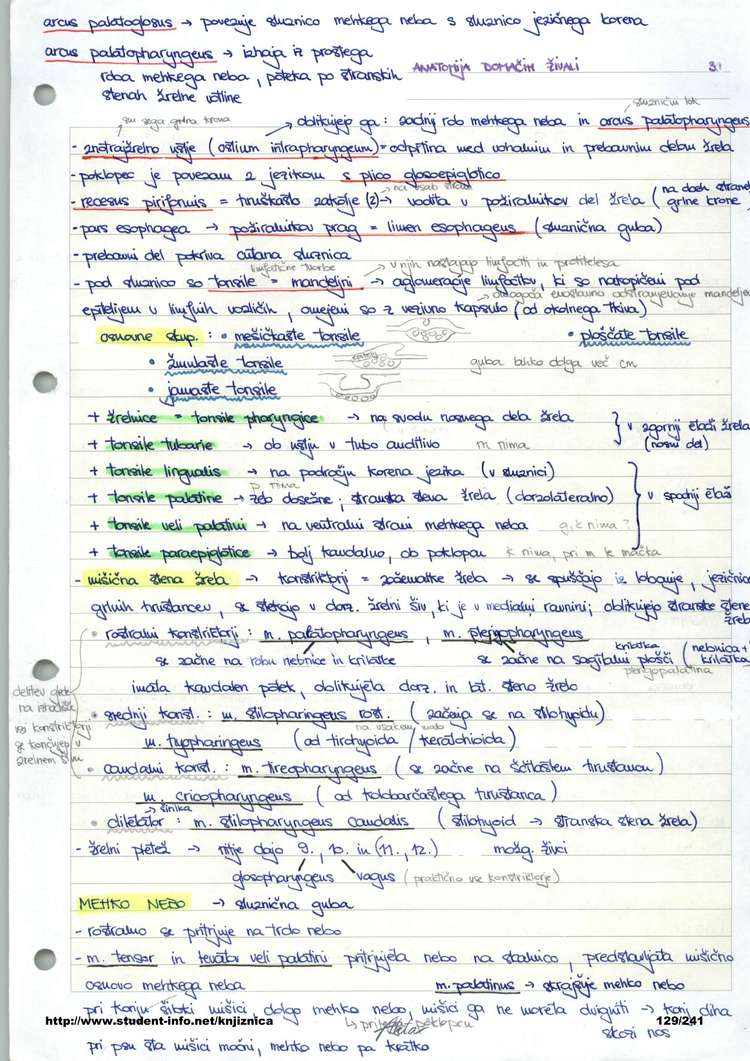 arcus palatoglosus → povezuje sluznico mehkega neba s sluznico jezičnega korena
arcus palatopharyngeus → izhaja iz prostega
roba mehkega neba, poteka po stranskih
stenah žrelne votline
ANATOMIJA DOMAČIH ŽIVALI 3.
sem sega grlna krona
sluznični lok
→ oblikujejo ga: zadnji rob mehkega neba in arcus palatopharyngeus
- znotrajžrelno ustje (ostium intrapharyngeum) = odprtina med dihalnim in prebavnim delom žrela
- poklopec je povezan z jezikom s plico glosoepiglotico
na vsab strani
- recesus piriformis = hruškasto zatočje (2) → vodita v požiralnikov del žrela (na dveh straneh grlne krone)
- pars esophagea → požiralnikov prag = limen esophageus (sluznična guba)
- prebavni del pokriva kutana sluznica
limfatične tvorbe
→ v njih nastajajo limfociti in protitelesa
- pod sluznico so tonsile = mandeljni → aglomeracije limfocitov, ki so nakopičeni pod
→ omogoča enostavno odstranjevanje mandeljev
epitelijem v limfnih vozličih, omejeni so z vezivno kapsulo (od okolnega tkiva)
osnovne skup.: • mešičkaste tonsile • ploščate tonsile
• žmulaste tonsile guba lahko dolga več cm
• jamaste tonsile
+ žrelnice = tonsile pharyngice → na svodu nosnega dela žrela } v zgornji etaži žrela
+ tonsile tubarie → ob ustju v tubo auditivo m nima (nosni del)
+ tonsile lingualis → na področju korena jezika (v sluznici)
p nima
+ tonsile palatine → zob dosežne; stranska stena žrela (dorzolateralno) } v spodnji etaži
+ tonsile veli palatini → na ventralni strani mehkega neba g, k nima?
+ tonsile paraepiglotice → bolj kaudalno, ob poklopcu k nima, pri m le mačka
- mišična stena žrela → konstriktorji = zažemalke žrela → se spuščajo iz lobanje, jezičnice
grlnih hrustancev, se stekajo v dorz. žrelni šiv, ki je v medialni ravnini; oblikujejo stranske stene žrela
• rostralni konstriktorji: m. palatopharyngeus, m. pterygopharyngeus
krilatka
se začne na robu nebnice in krilatke se začne na sagitalni plošči (nebnica + krilatka)
pterigopalatina
imata kaudalen potek, oblikujeta dorz. in lat. steno žrela
delitev glede
na izhodišče
vsi konstriktorji
se končujejo v
žrelnem šivu
• srednji konst.: m. stilopharingeus rost. (začenja se na stilohyoidu)
m. hyopharingeus (od tirohyoida / keratohioida)
• caudalni konst.: m. tireopharyngeus (se začne na ščitastem hrustancu)
m. cricopharyngeus (od kolobarčastega hrustanca)
→ širilka
• dilatator: m. stilopharyngeus caudalis (stilohyoid → stranska stena žrela)
- žrelni pletež → nitje dajo 9., 10. in (11., 12.) možg. živci
glosopharyngeus vagus (praktično vse konstriktorje)
MEHKO NEBO → sluznična guba
- rostralno se pritrjuje na trdo nebo
- m. tensor in levator veli palatini pritrjujeta nebo na senčnico, predstavljata mišično
osnovo mehkega neba m. palatinus → skrajšuje mehko nebo
pri konju šibki mišici dolgo mehko nebo, mišici ga ne moreta dvigniti → konj diha
skozi nos
pri psu sta mišici močni, mehko nebo pa kratko
http://www.student-info.net/knjiznica
129/241